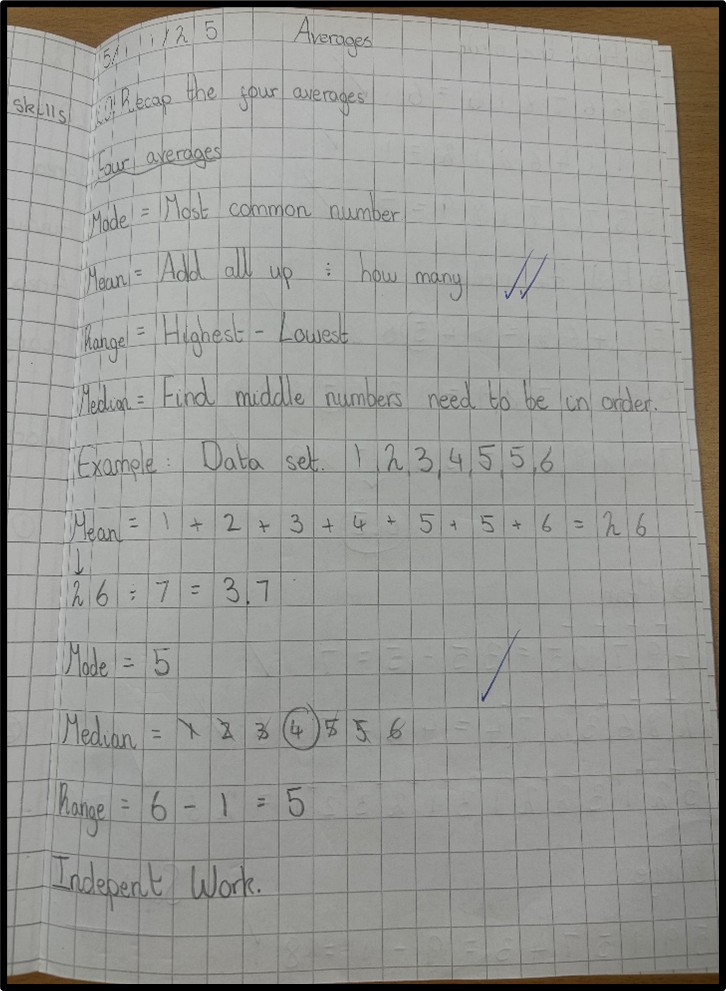 5/11/25 Averages
skills
LO: Recap the four averages
Four averages
Mode = Most common number
Mean = Add all up ÷ how many
Range = Highest - Lowest
Median = Find middle numbers need to be in order.
Example: Data set. 1,2,3,4,5,5,6
Mean = 1 + 2 + 3 + 4 + 5 + 5 + 6 = 26
↓
26 ÷ 7 = 3.7
Mode = 5
Median = 1 2 3 4 5 5 6
Range = 6 - 1 = 5
Indepent Work.